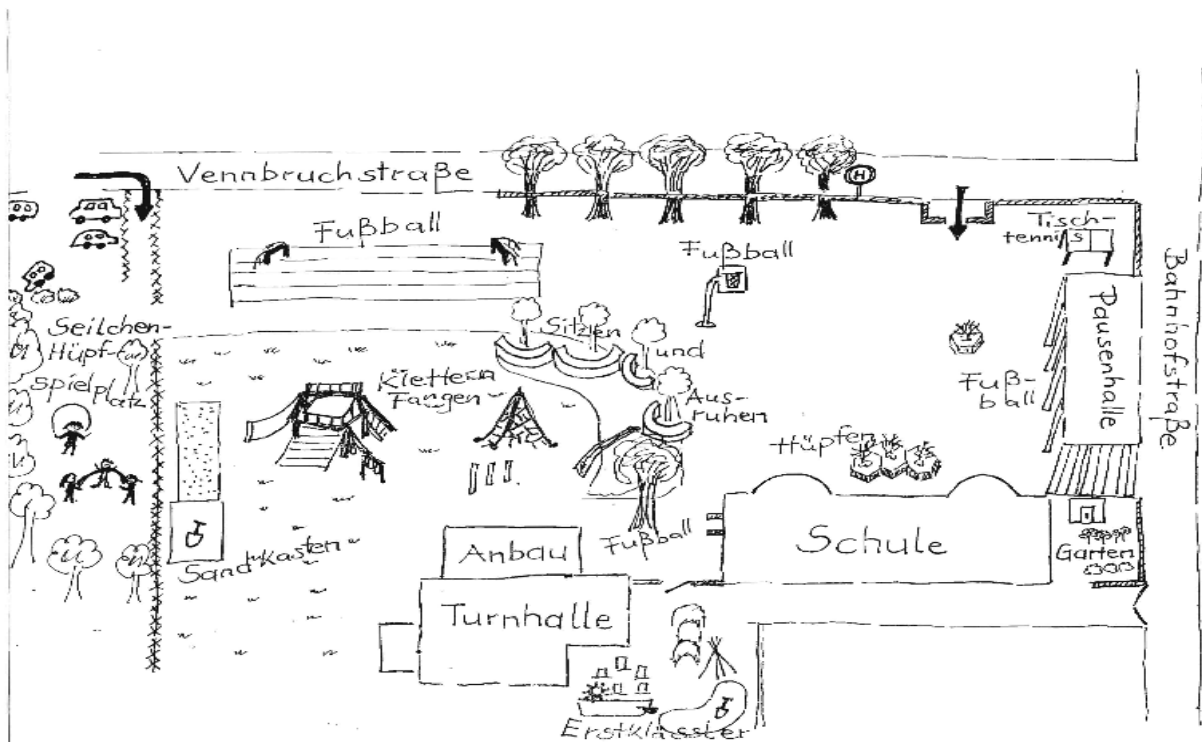 Vennbruchstraße
H
Fußball
Fußball
Tisch-
tennis
Bahnhofstraße
Seilchen-
Hüpf-
spielplatz
Sitzen
und
Aus-
ruhen
Klettern
Fangen
Fuß-
ball
Pausenhalle
Hüpfen
Sandkasten
Anbau
Fußball
Schule
Garten
Turnhalle
Erstklässler